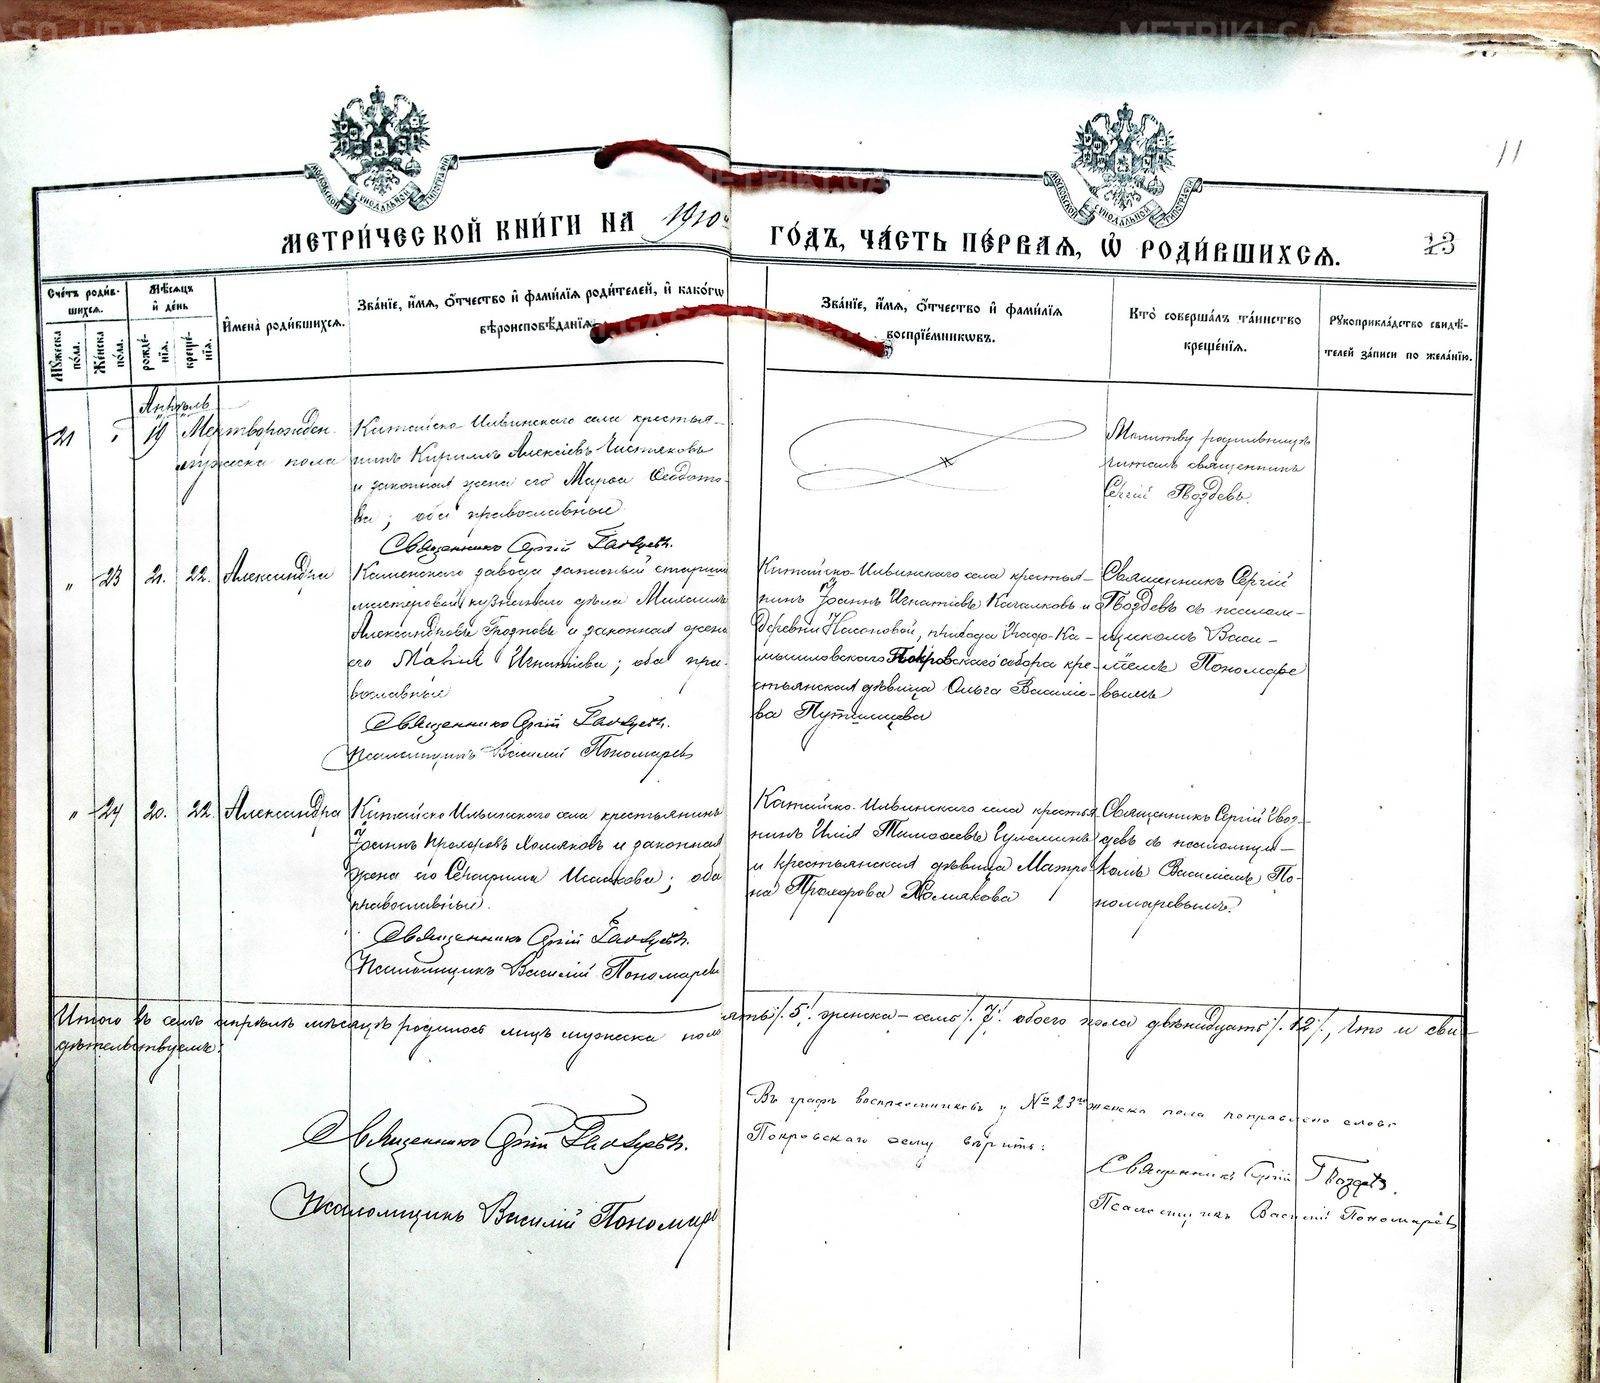 METRIKI.GASO
11
МОСКОВСКОЙ СѴНОДАЛЬНОЙ ТИПОГРАФІИ
МОСКОВСКОЙ СѴНОДАЛЬНОЙ ТИПОГРАФІИ
МЕТРИ́ЧЕСКОЙ КНИ́ГИ НА 1910й ГО́ДЪ, ЧА́СТЬ ПЕ́РВАЯ, Ѡ҆ РОДИ́ВШИХСЯ.
13
Сче́тъ роди́вшихся.
Му́жеска по́ла.
Же́нска по́ла.
Мѣ́сяцъ и҆ де́нь
рожде́нія.
креще́нія.
И҆мена̀ роди́вшихся.
Зва́ніе, и҆́мя, ѻ҆́тчество и҆ фами́лія роди́телей, и҆ како́гѡ
вѣроисповѣ́данія.
Зва́ніе, и҆́мя, ѻ҆́тчество и҆ фами́лія
воспріе́мникѡвъ.
Кто̀ соверша́лъ та́инство
креще́нія.
Рукоприкла́дство свидѣ́-
телей за́писи по жела́нію.
Апрѣль
21 " 19 Мертворожден.
мужеска пола
Китайско-Ильинскаго села крестья-
нинъ Кириллъ Алексіевъ Чистяковъ
и законная жена его Марѳа Ѳеодото-
ва; оба православные
Священникъ Сергій Гвоздевъ.
Молитву родильницѣ
читалъ священникъ
Сергій Гвоздевъ.
" 23 21. 22. Александра
Каменскаго завода запасный старшій
мастеровой кузнечнаго дѣла Михаилъ
Александровъ Грозновъ и законная жена
его Марія Игнатіева; оба пра-
вославные
Священникъ Сергій Гвоздевъ.
Псаломщикъ Василій Пономаревъ
Китайско-Ильинскаго села крестья-
нинъ Іоаннъ Игнатіевъ Качалковъ и
деревни Насоновой, прихода Градо-Ка-
мышловскаго Покровскаго собора кре-
стьянская дѣвица Ольга Василіе-
ва Путилцева
Священникъ Сергій
Гвоздевъ съ псалом-
щикомъ Васи-
ліемъ Пономаре
вымъ
" 24 20. 22. Александра
Китайско-Ильинскаго села крестьянинъ
Іоаннъ Прохоровъ Холмяковъ и законная
жена его Секатерина Исаакова; оба
православные.
Священникъ Сергій Гвоздевъ.
Псаломщикъ Василій Пономаревъ
Китайско-Ильинскаго села крестья
нинъ Илія Тимоѳеевъ
и крестьянская дѣвица Матро
на Прохорова Холмякова
Священникъ Сергій Гвоз-
девъ съ псаломщи-
комъ Василіемъ По-
номаревымъ.
Итого въ семъ апрѣлѣ мѣсяцѣ родилось лицъ мужеска пола пять /.5/. женска - семь /.7/. обоего пола двѣнадцать /.12/., что и сви-
дѣтельствуемъ:
Священникъ Сергій Гвоздевъ.
Псаломщикъ Василій Пономарев
Въ графѣ воспреемниковъ у № 23го женска пола поправлено слово
Покровскаго сему вѣрить:
Священникъ Сергій Гвоздевъ.
Псаломщикъ Василій Пономаревъ